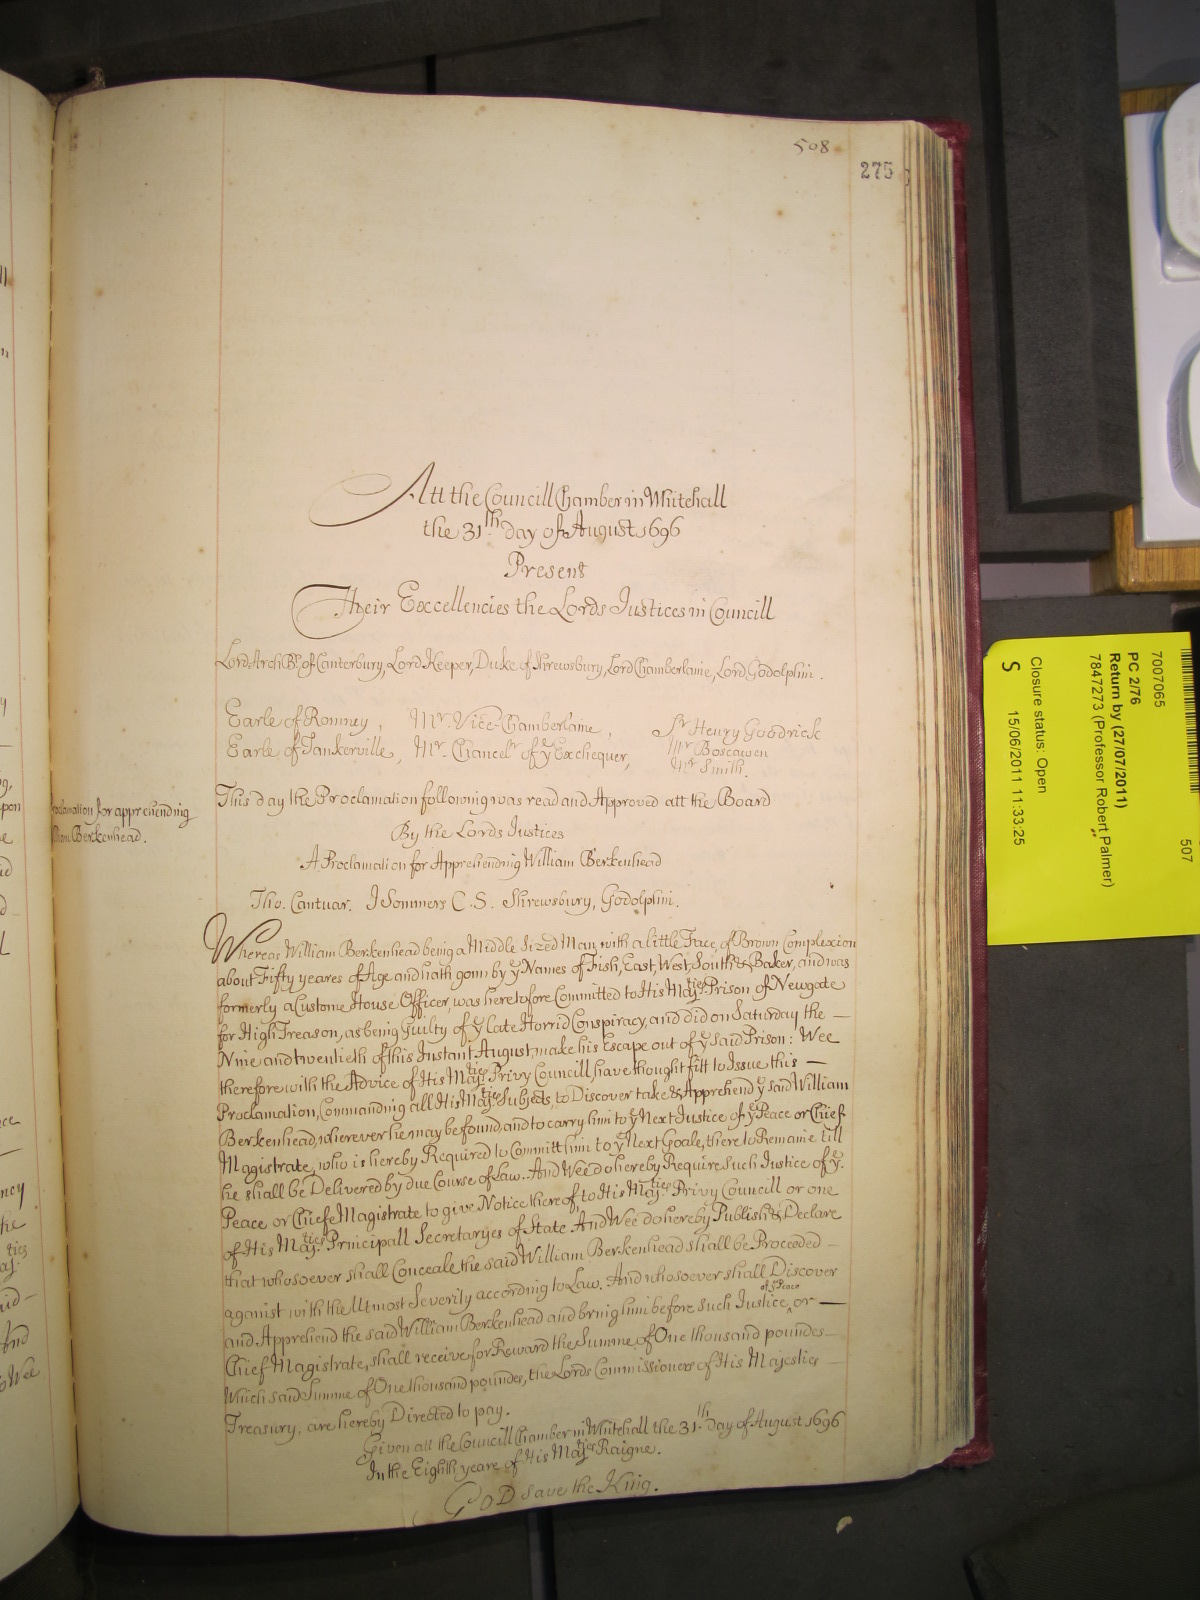 508
275
Att the Councill Chamber in Whitehall
the 31th day of August 1696
Present
Their Excellencies the Lords Justices in Councill
Lord ArchBp. of Canterbury, Lord Keeper, Duke of Shrewsbury, Lord Chamberlaine, Lord Godolphin.
Earle of Romney, Mr. Vice-Chamberlaine, Sr Henry Goodrick
Earle of Tankerville, Mr. Chancelr of ye Exchequer, Mr Boscawen
Mr Smith.
This day the Proclamation following was read and Approved att the Board
Proclamation for apprehending
Berkenhead.
By the Lords Justices
A Proclamation for Apprehending William Berkenhead
Tho. Cantuar. J Sommers C.S. Shrewsbury, Godolphin.
Whereas William Berkenhead being a Middle Sized Man, with a little Face, of Brown Complexion
about Fifty yeares of Age and hath gonn by ye Names of Fish, East, West, South & Baker, and was
formerly a Custome House Officer, was heretofore Committed to His Majties Prison of Newgate
for High Treason, as being Guilty of ye late Horrid Conspiracy, and did on Saturday the —
Nine and twentieth of this Instant August, make his Escape out of ye said Prison: Wee
therefore with the Advice of His Majties Privy Councill, have thought fitt to Issue this —
Proclamation, Commanding all His Majties Subjects, to Discover take & Apprehend ye said William
Berkenhead, wherever he may be found, and to carry him to ye Next Justice of ye Peace or Chief
Magistrate, who is hereby Required to Committ him to ye Next Goale, there to Remaine till
he shall be Delivered by due Course of Law. And Wee do hereby Require such Justice of ye.
Peace or Chiefe Magistrate to give Notice thereof, to His Majties Privy Councill or one
of His Majties Principall Secretaryes of State. And Wee do hereby Publish & Declare
that whosoever shall Conceale the said William Berkenhead shall be Proceeded —
against with the Utmost Severity according to Law. And whosoever shall Discover
and Apprehend the said William Berkenhead and bring him before such Justice ^of ye Peace or —
Chief Magistrate, shall receive for Reward the Summe of One thousand poundes —
Which said Summe of One thousand poundes, the Lords Commissioners of His Majesties —
Treasury, are hereby Directed to pay.
Given att the Councill Chamber in Whitehall the 31.th day of August 1696
In the Eighth yeare of His Majties Raigne.
GOD save the King.
7007065
507
PC 2/76
Return by (27/07/2011)
7847273 (Professor Robert Palmer)
Closure status: Open
S 15/06/2011 11:33:25